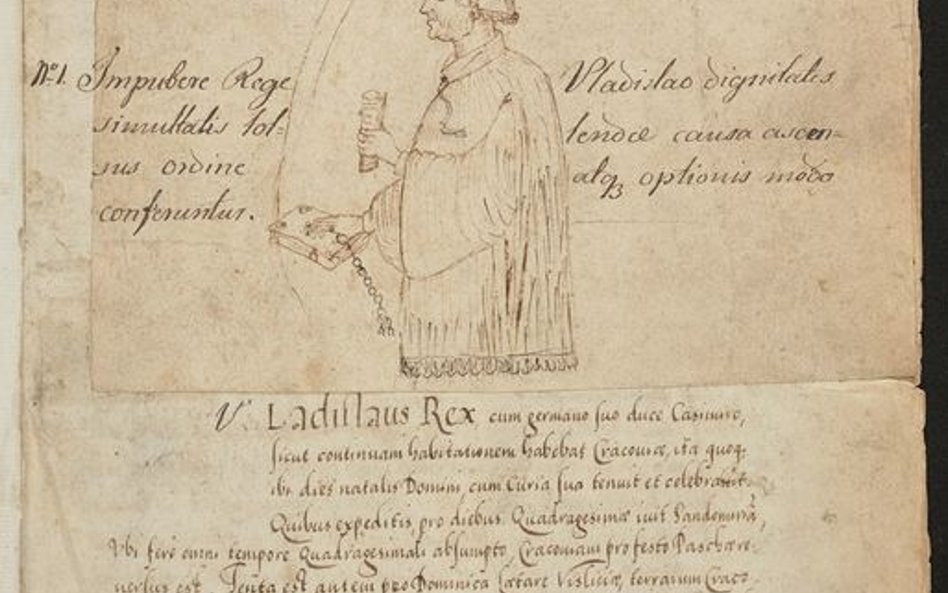 No. 1. Impubere Rege Vladislao dignitates
simultatis tol- lendæ causa ascen-
sus ordine atqꝫ optionis modo
conferuntur.
V Ladislaus Rex, cum germano suo duce Casimiro,
sicut continuam habitationem habebat Cracoviæ, ita quoq;
ibi dies natalis Domini, cum Curia sua tenuit et celebravit.
Quibus expeditis, pro diebus Quadragesimæ ivit Sandomiriã,
Vbi ferè omni tempore Quadragesimali absumpto, Cracoviam pro festo Paschæ re-
versus est. Tenta est autem pro Dominica Lætare Visliciæ, terrarum Craco-